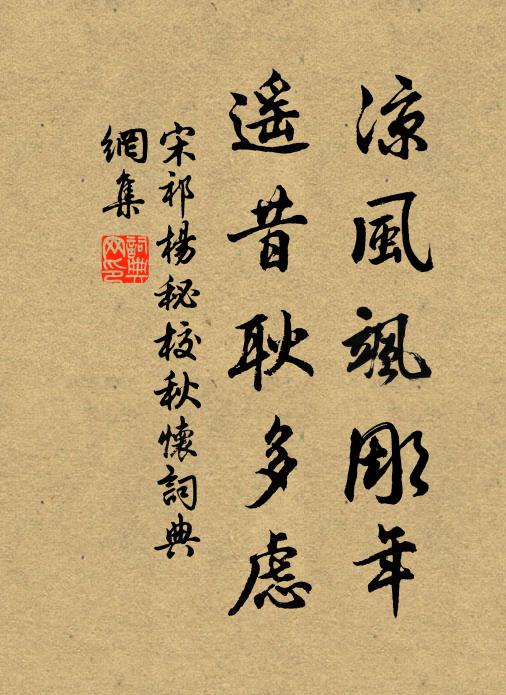 凉風颯彫年
遥昔耿多虑
宋祁楊秘校秋懷詞典
網集
詞典
网印